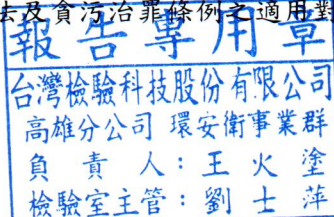 去及貪污治罪條例之適用對
報告專用章
台灣檢驗科技股份有限公司
高雄分公司 環安衛事業群
負責人：王火塗
檢驗室主管：劉士萍